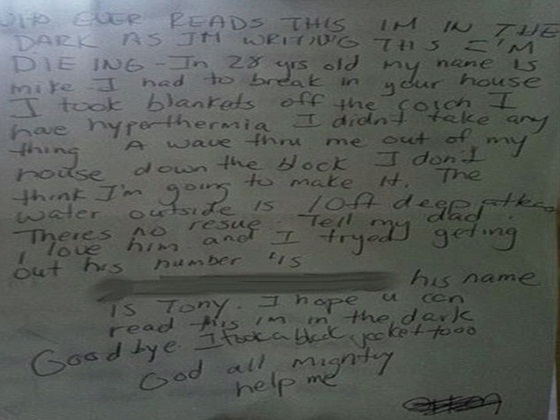 WHO EVER READS THIS IM IN THE
DARK AS IM WRITING THIS I'M
DIE ING - In 28 yrs old my name is
mike I had to break in your house
I took blankets off the coich I
have hyperthermia I didn't take any
thing A wave thru me out of my
house down the block I don't
think I'm going to make it. The
water outside is 10ft deep atleas
Theres no resue. Tell my dad
I love him and I tryed geting
out his number is
his name
is Tony. I hope u can
read this im in the dark
Good bye. I took a black jacket tooo
God all mighty
help me